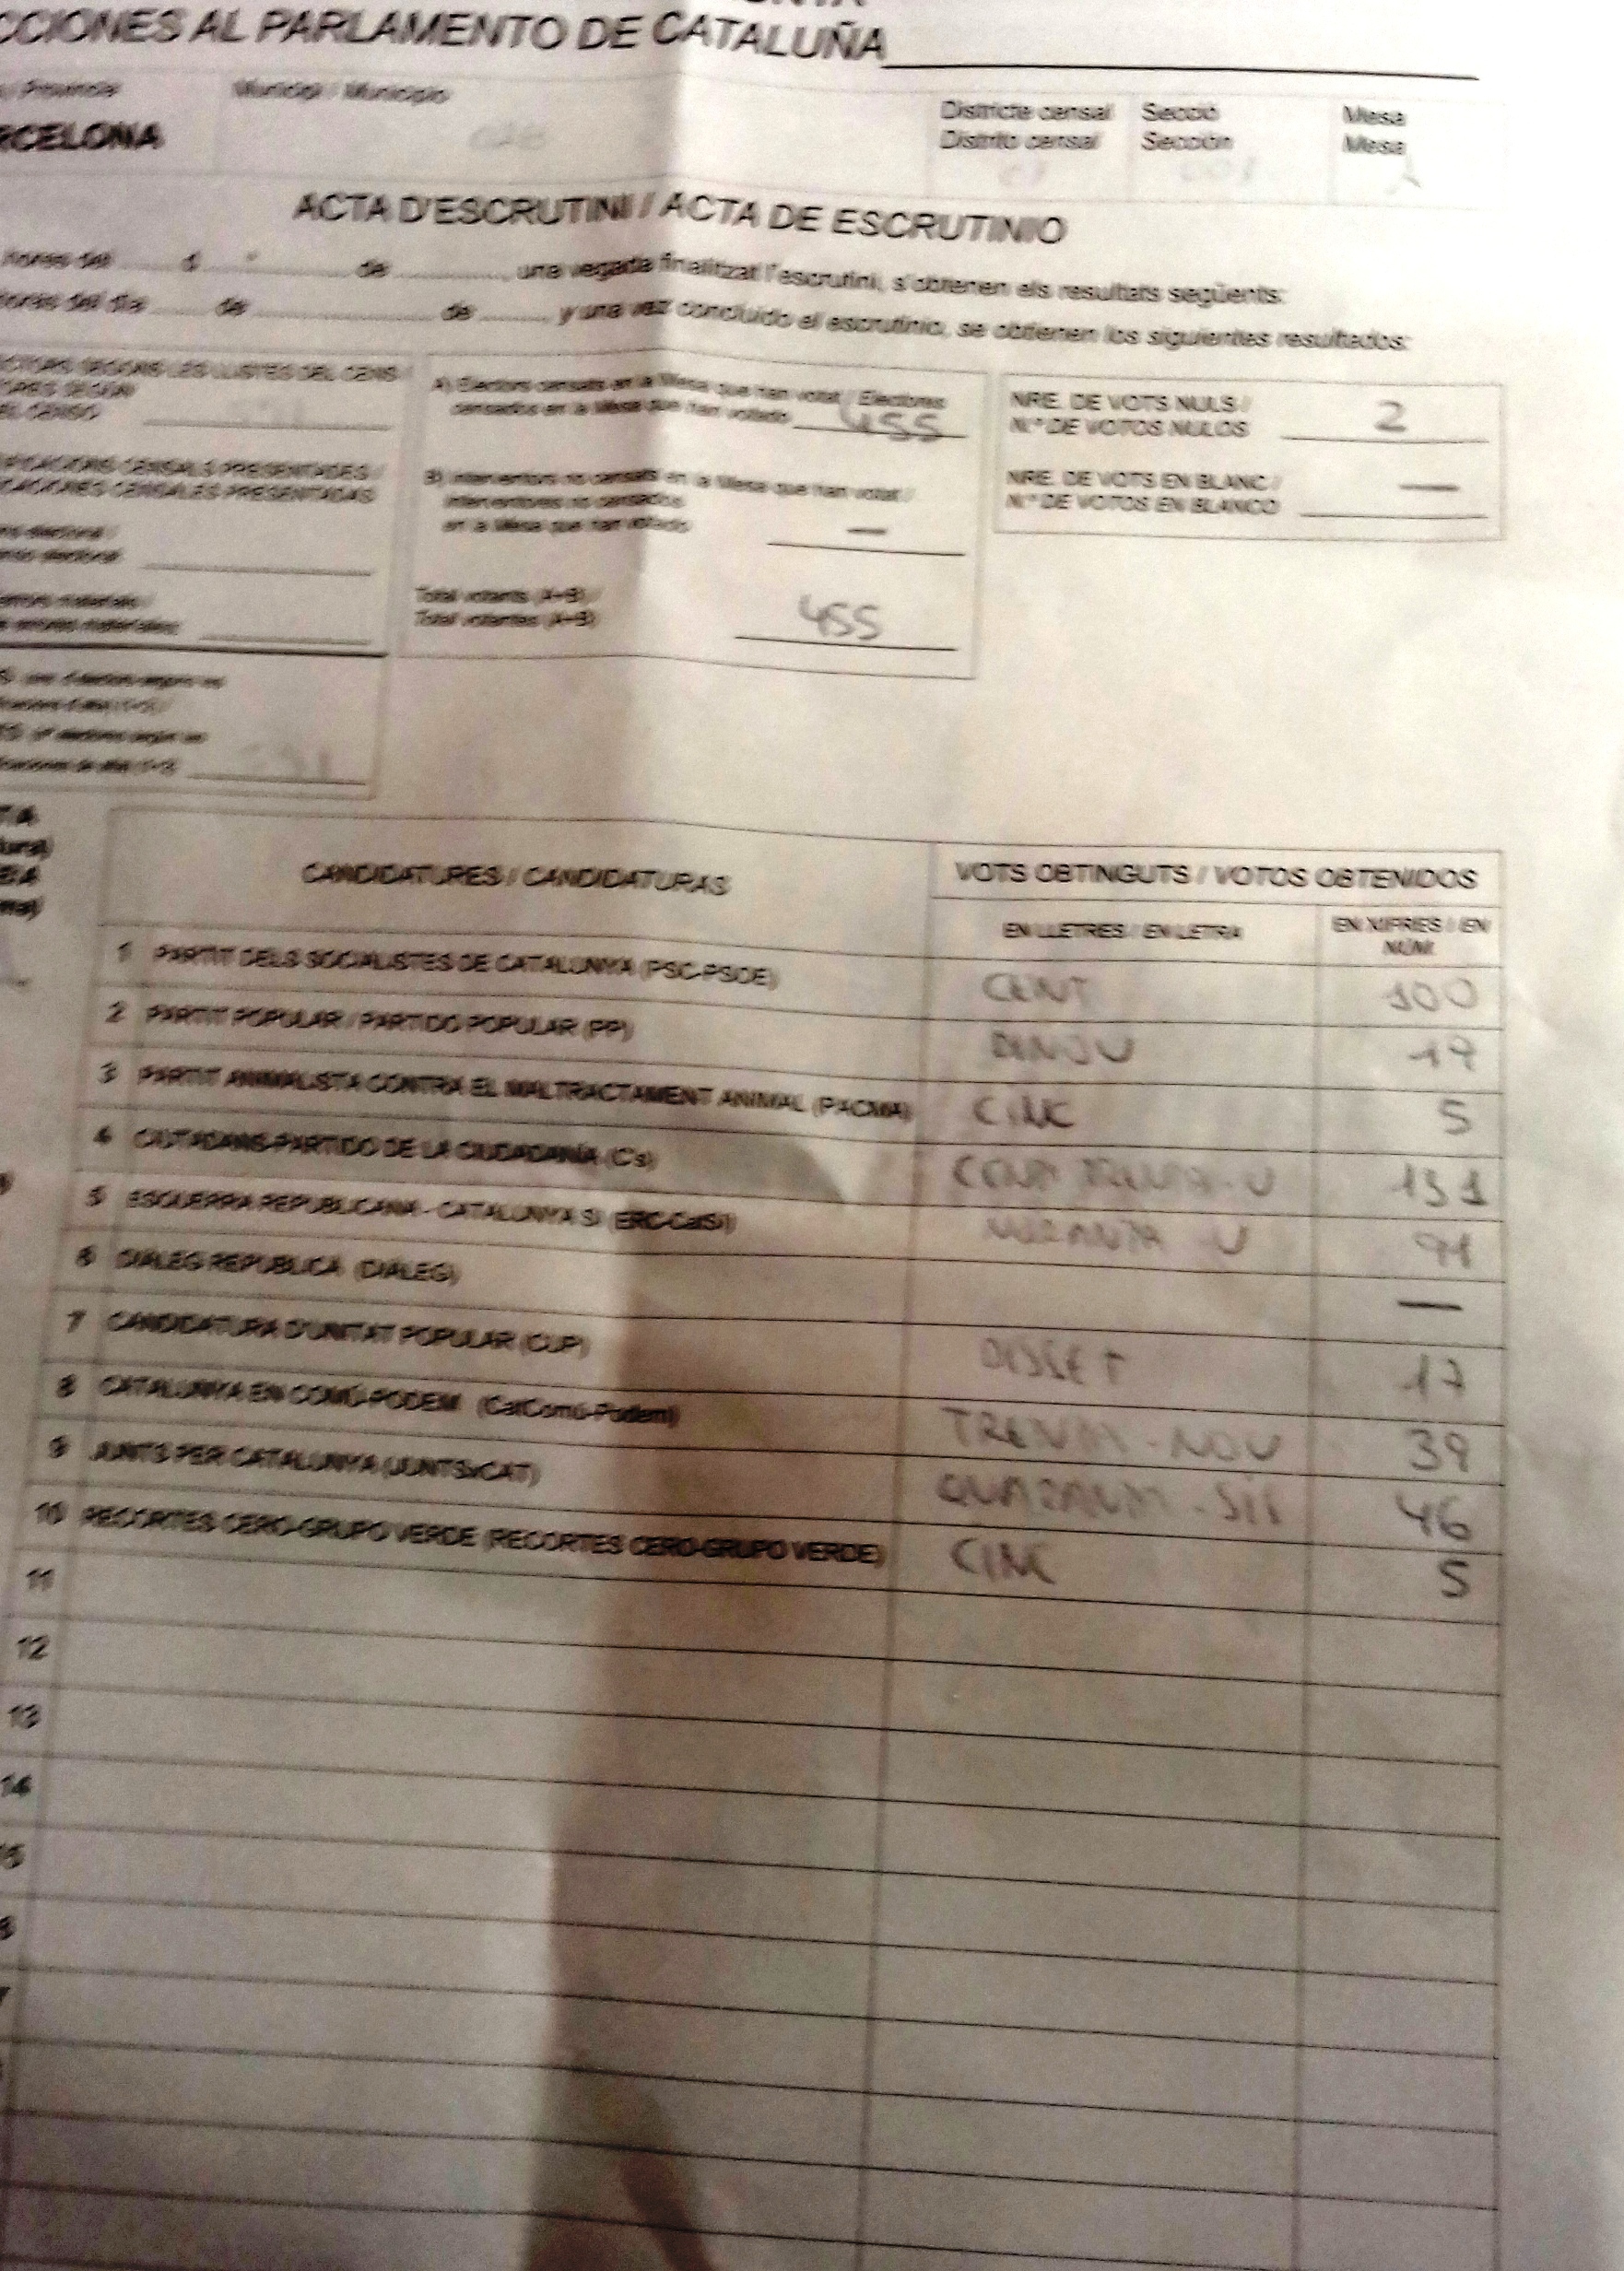 CCIONES AL PARLAMENTO DE CATALUÑA
/ Província Municipi / Municipio
RCELONA
Districte censal Secció Mesa
Distrito censal Sección Mesa
ACTA D'ESCRUTINI / ACTA DE ESCRUTINIO
hores del de una vegada finalitzat l'escrutini, s'obtenen els resultats següents:
horas del día de de y una vez concluido el escrutinio, se obtienen los siguientes resultados:
CTORS SEGONS LES LLISTES DEL CENS /
ORES SEGÚN
EL CENSO
FICACIONS CENSALS PRESENTADES /
CACIONES CENSALES PRESENTADAS
A) Electors censats en la Mesa que han votat / Electores
censados en la Mesa que han votado 455
B) Interventors no censats en la Mesa que han votat /
Interventores no censados
en la Mesa que han votado —
Total votants (A+B) /
Total votantes (A+B) 455
NRE. DE VOTS NULS /
N.º DE VOTOS NULOS 2
NRE. DE VOTS EN BLANC /
N.º DE VOTOS EN BLANCO —
CANDIDATURES / CANDIDATURAS
VOTS OBTINGUTS / VOTOS OBTENIDOS
EN LLETRES / EN LETRA
EN XIFRES / EN
NÚM.
1 PARTIT DELS SOCIALISTES DE CATALUNYA (PSC-PSOE) CENT 100
2 PARTIT POPULAR / PARTIDO POPULAR (PP) DINOU 19
3 PARTIT ANIMALISTA CONTRA EL MALTRACTAMENT ANIMAL (PACMA) CINC 5
4 CIUTADANS-PARTIDO DE LA CIUDADANÍA (C's) CENT TRENTA-U 131
5 ESQUERRA REPUBLICANA - CATALUNYA SÍ (ERC-CatSí) NORANTA-U 91
6 DIÀLEG REPÚBLICA (DIÀLEG) —
7 CANDIDATURA D'UNITAT POPULAR (CUP) DISSET 17
8 CATALUNYA EN COMÚ-PODEM (CatComú-Podem) TRENTA-NOU 39
9 JUNTS PER CATALUNYA (JUNTSxCAT) QUARANTA-SIS 46
10 RECORTES CERO-GRUPO VERDE (RECORTES CERO-GRUPO VERDE) CINC 5
11
12
13
14